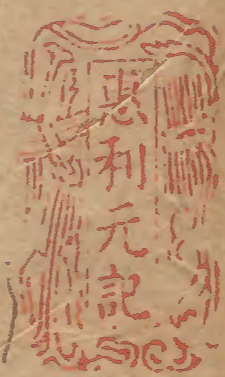 惠利元記